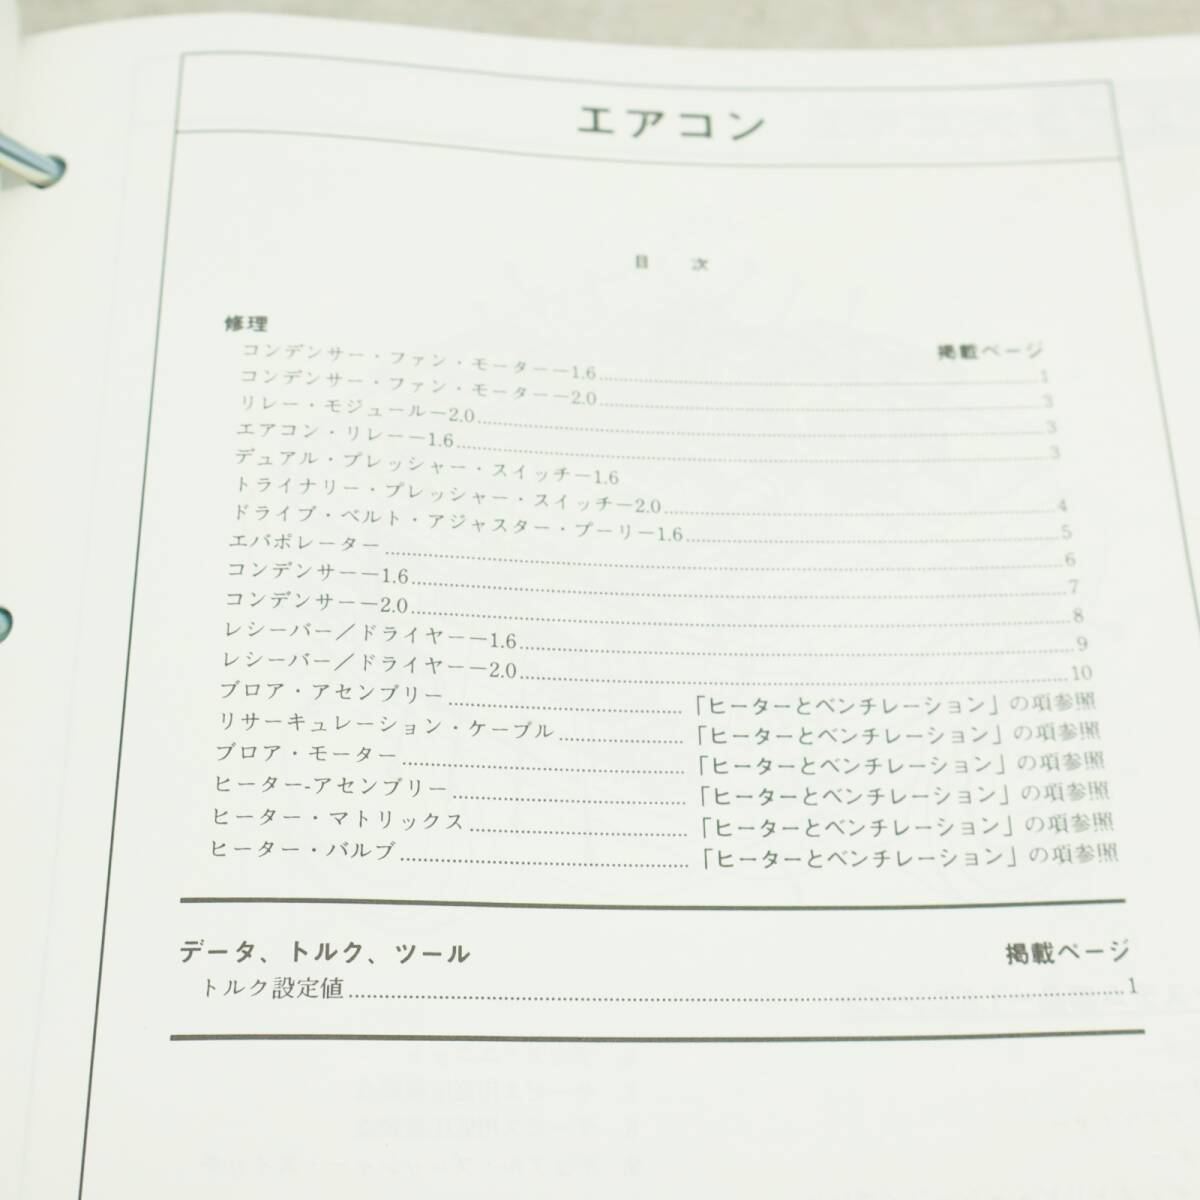 エアコン
目 次
修理
掲載ページ
コンデンサー・ファン・モーター―1.6 1
コンデンサー・ファン・モーター―2.0 3
リレー・モジュール―2.0 3
エアコン・リレー―1.6 3
デュアル・プレッシャー・スイッチ―1.6
トライナリー・プレッシャー・スイッチ―2.0 4
ドライブ・ベルト・アジャスター・プーリー1.6 5
エバポレーター 6
コンデンサー―1.6 7
コンデンサー―2.0 8
レシーバー/ドライヤー―1.6 9
レシーバー/ドライヤー―2.0 10
ブロア・アセンブリー 「ヒーターとベンチレーション」の項参照
リサーキュレーション・ケーブル 「ヒーターとベンチレーション」の項参照
ブロア・モーター 「ヒーターとベンチレーション」の項参照
ヒーター-アセンブリー 「ヒーターとベンチレーション」の項参照
ヒーター・マトリックス 「ヒーターとベンチレーション」の項参照
ヒーター・バルブ 「ヒーターとベンチレーション」の項参照
データ、トルク、ツール 掲載ページ
トルク設定値 1